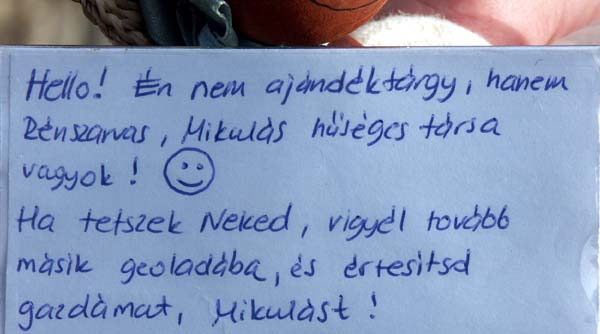 Hello! Én nem ajándéktárgy, hanem
Rénszarvas, Mikulás hűséges társa
vagyok!
Ha tetszek Neked, vigyél tovább
másik geoládába, és értesitsd
gazdámat, Mikulást!